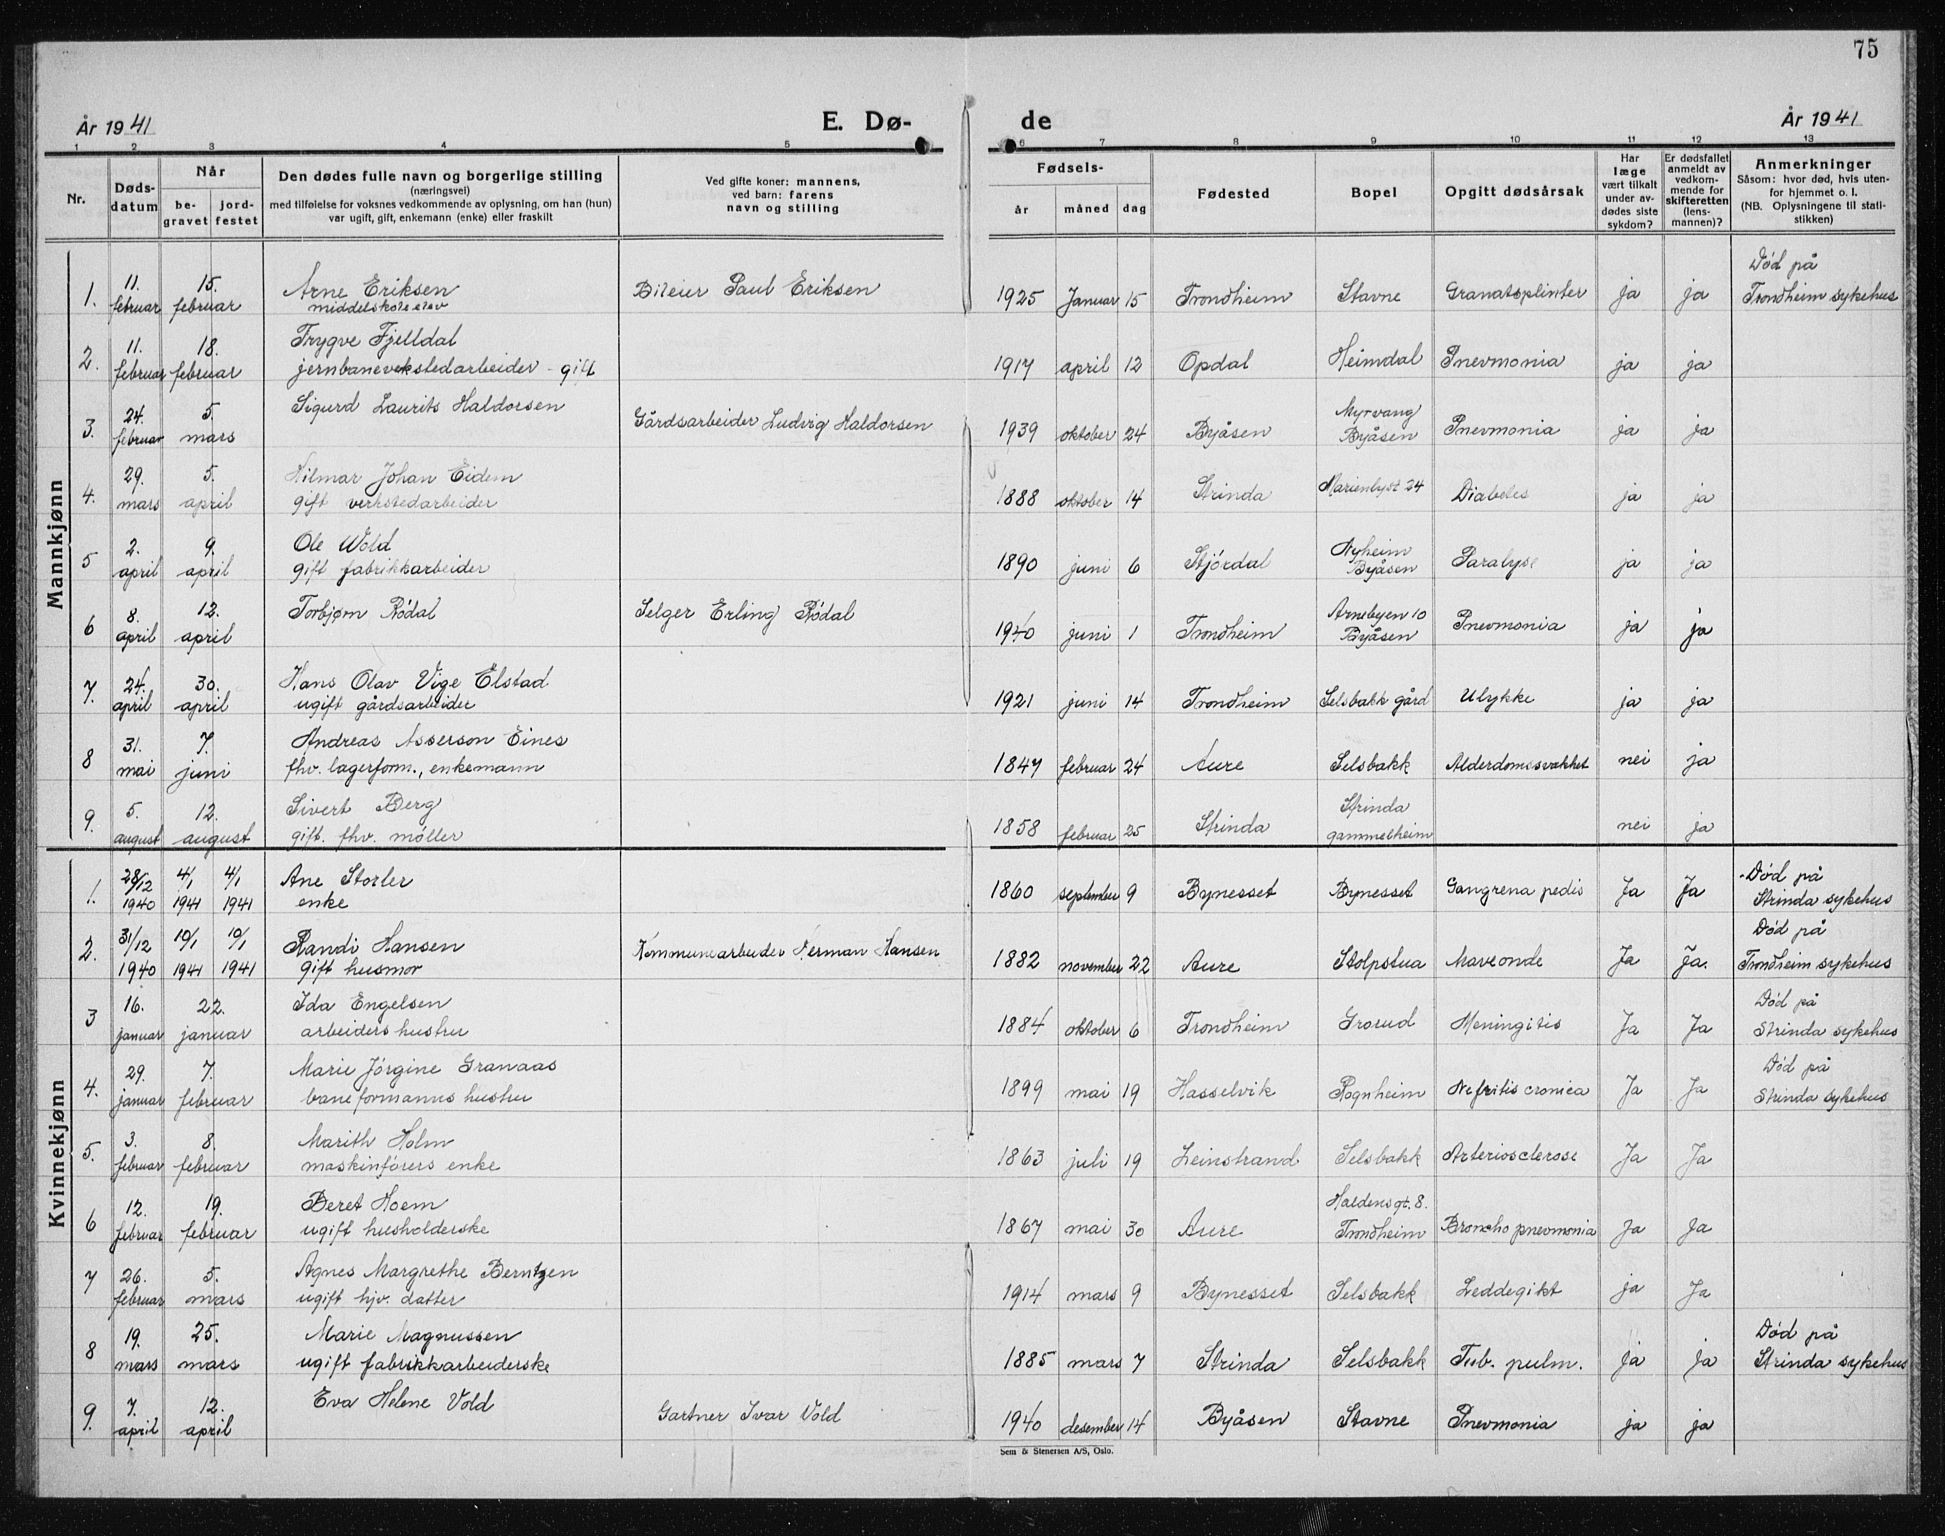 75
År 1941
E. Dø-
de
År 1941
1 2 3 4 5 6 7 8 9 10 11 12 13
Nr. | Dødsdatum | Når begravet | jordfestet | Den dødes fulle navn og borgerlige stilling (næringsvei) med tilføielse for voksnes vedkommende av oplysning, om han (hun) var ugift, gift, enkemann (enke) eller fraskilt | Ved gifte koner: mannens, ved barn: farens navn og stilling | Fødsels- år | måned | dag | Fødested | Bopel | Opgitt dødsårsak | Har læge vært tilkalt under avdødes siste sykdom? | Er dødsfallet anmeldt av vedkommende for skifteretten (lensmannen)? | Anmerkninger Såsom: hvor død, hvis utenfor hjemmet o. l. (NB. Oplysningene til statistikken)
Mannkjønn
1. | 11. februar | 15. februar | Arne Eriksen middelskoleelev | Bileier Paul Eriksen | 1925 | Januar | 15 | Trondheim | Stavne | Granatsplinter | ja | ja | Død på Trondheim sykehus
2. | 11. februar | 18. februar | Trygve Fjelldal jernbaneverkstedarbeider - gift | 1917 | april | 12 | Opdal | Heimdal | Pnevmonia | ja | ja
3. | 24. februar | 5. mars | Sigurd Laurits Haldorsen | Gårdsarbeider Ludvig Haldorsen | 1939 | oktober | 24 | Byåsen | Myrvang Byåsen | Pnevmonia | ja | ja
4. | 29. mars | 5. april | Hilmar Johan Eidem gift verkstedarbeider | 1888 | oktober | 14 | Strinda | Marienlyst 24 | Diabetes | ja | ja
5 | 2. april | 9. april | Ole Wold gift fabrikkarbeider | 1890 | juni | 6 | Stjördal | Nyheim Byåsen | Paralyse | ja | ja
6 | 8. april | 12. april | Torbjørn Rödal | Selger Erling Rödal | 1940 | juni | 1 | Trondheim | Arnebyen 10 Byåsen | Pnevmonia | ja | ja
7. | 24. april | 30. april | Hans Olav Vige Elstad ugift gårdsarbeider | 1921 | juni | 14 | Trondheim | Selsbakk gård | Ulykke | ja | ja
8 | 31. mai | 7. juni | Andreas Asserson Eines fhv. lagerform., enkemann | 1847 | februar | 24 | Aure | Selsbakk | Alderdomssvakhet | nei | ja
9. | 5. august | 12. august | Sivert Berg gift. fhv. möller | 1858 | februar | 25 | Strinda | Strinda gammelheim | nei | ja
Kvinnekjønn
1. | 28/12 1940 | 4/1 1941 | 4/1 1941 | Ane Storler enke | 1860 | september | 9 | Bynesset | Bynesset | Gangrena pedis | Ja | Ja | Død på Strinda sykehus
2. | 31/12 1940 | 10/1 1941 | 10/1 1941 | Randi Hansen gift husmor | Kommunearbeider Herman Hansen | 1882 | november | 22 | Aure | Stolpstua | Maveonde | Ja | Ja. | Død på Trondheim sykehus
3 | 16. januar | 22. januar | Ida Engelsen arbeiders hustru | 1884 | oktober | 6 | Trondheim | Grorud | Meningitis | Ja | Ja | Død på Strinda sykehus
4. | 29. januar | 7. februar | Marie Jörgine Granaas baneformanns hustru | 1899 | mai | 19 | Hasselvik | Rognheim | Nefritis cronica | Ja | Ja | Død på Strinda sykehus
5. | 3. februar | 8. februar | Marith Holm maskinförers enke | 1863 | juli | 19 | Leinstrand | Selsbakk | Arteriosclerose | Ja | Ja
6 | 12. februar | 19. februar | Beret Hoem ugift husholderske | 1867 | mai | 30 | Aure | Haldens gt. 8. Trondheim | Broncho pnevmonia | Ja | Ja
7 | 26. februar | 5. mars | Agnes Margrethe Berntzen ugift hjv. datter | 1914 | mars | 9 | Bynesset | Selsbakk | Leddegikt | ja | Ja
8 | 19. mars | 25. mars | Marie Magnussen ugift fabrikkarbeiderske | 1885 | mars | 7 | Strinda | Selsbakk | Tub. pulm. | ja | ja | Død på Strinda sykehus
9. | 7. april | 12. april | Eva Helene Vold | Gartner Ivar Vold | 1940 | desember | 14 | Byåsen | Stavne | Pnevmonia | ja | ja
Sem & Stenersen A/S, Oslo.